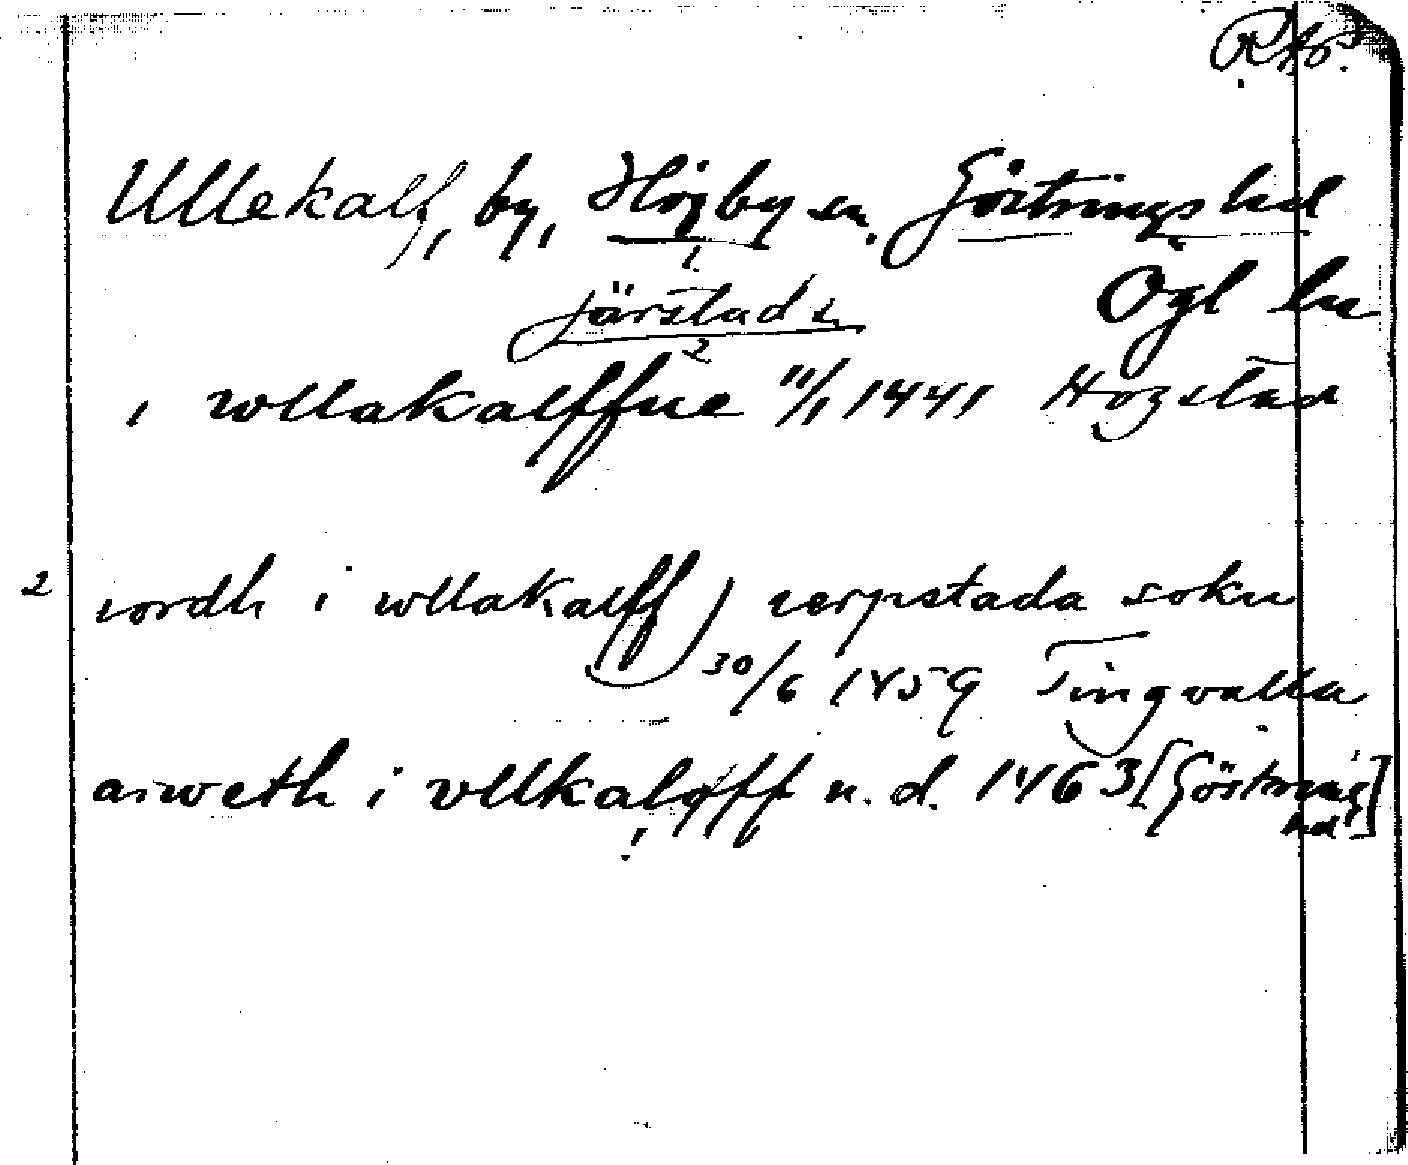 RAp.
Ullekalf, by, Högby sn. Göstrings hd
1.
Järstad s. Ögl län
2
i wllakalffue 11/1 1441 Hogstad
2 iordh i wllakalff ) ierpstada sokn
30/6 1459 Tingvalla
arweth i vllkaloff u. d. 1463 [Göstring
! hd]